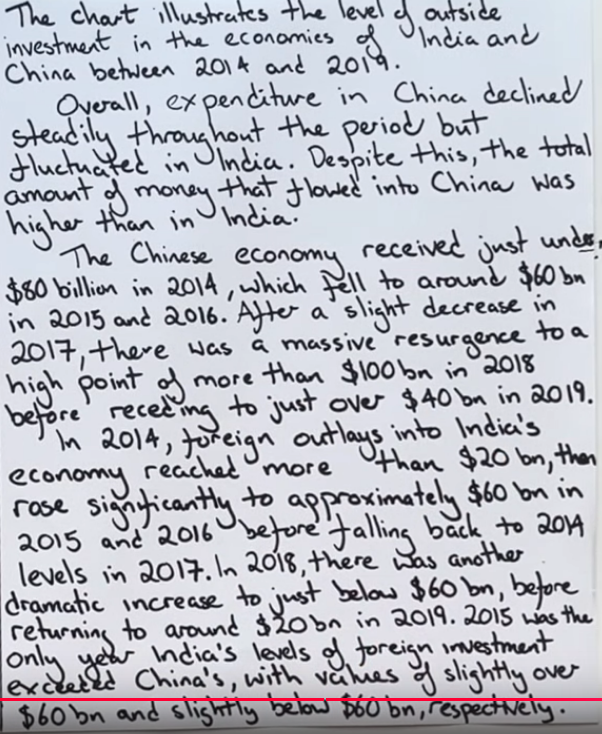 The chart illustrates the level of outside
investment in the economies of India and
China between 2014 and 2019.
Overall, expenditure in China declined
steadily throughout the period but
fluctuated in India. Despite this, the total
amount of money that flowed into China was
higher than in India.
The Chinese economy received just under
$80 billion in 2014, which fell to around $60 bn
in 2015 and 2016. After a slight decrease in
2017, there was a massive resurgence to a
high point of more than $100 bn in 2018
before receding to just over $40 bn in 2019.
In 2014, foreign outlays into India's
economy reached more than $20 bn, then
rose significantly to approximately $60 bn in
2015 and 2016 before falling back to 2014
levels in 2017. In 2018, there was another
dramatic increase to just below $60 bn, before
returning to around $20 bn in 2019. 2015 was the
only year India's levels of foreign investment
exceeded China's, with values of slightly over
$60 bn and slightly below $60 bn, respectively.